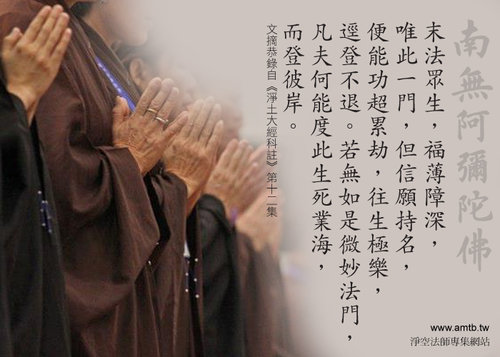 南無阿彌陀佛
末法眾生，福薄障深，
唯此一門，但信願持名，
便能功超累劫，往生極樂，
逕登不退。若無如是微妙法門，
凡夫何能度此生死業海，
而登彼岸。
文摘恭錄自《淨土大經科註》第十二集
www.amtb.tw
淨空法師專集網站